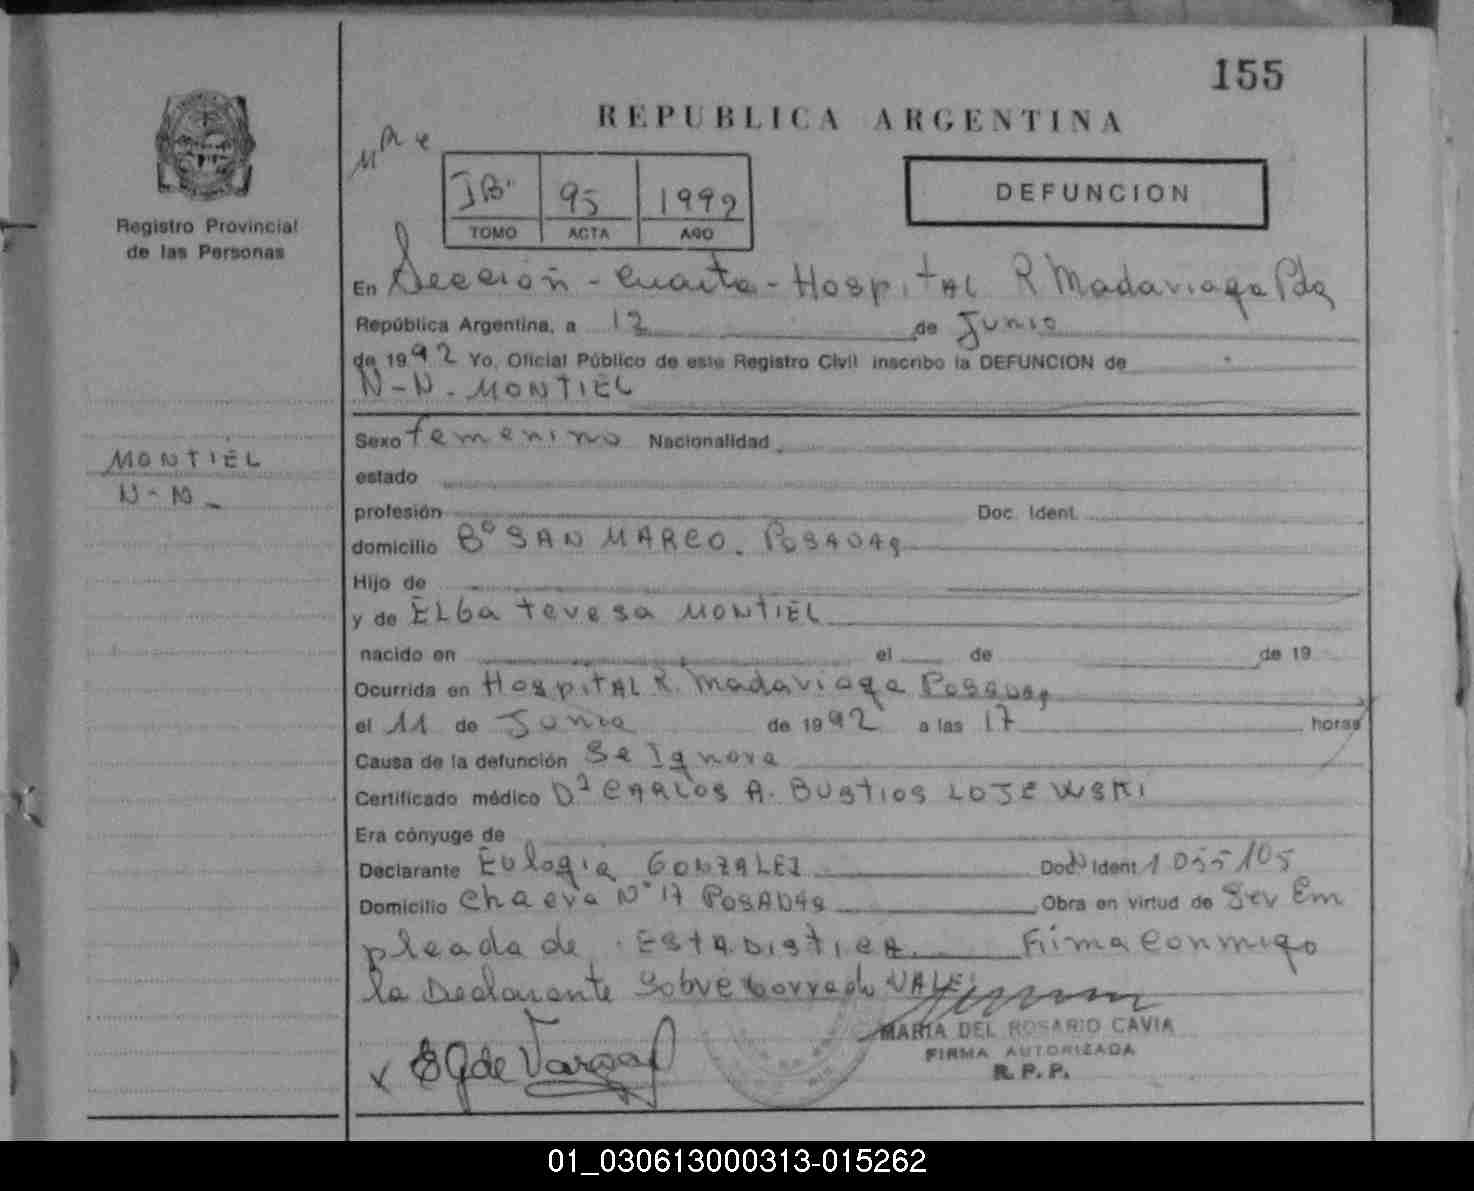 155
REPUBLICA ARGENTINA
95 1992
TOMO ACTA AÑO
DEFUNCION
Registro Provincial
de las Personas
En Sección - Cuarta - Hospital R Madariaga Pdas
República Argentina, a 12 de Junio
de 1992 Yo, Oficial Público de este Registro Civil inscribo la DEFUNCION de
N-N. MONTIEL
MONTIEL
N-N_
Sexo femenino Nacionalidad
estado
profesión Doc. Ident.
domicilio Bº SAN MARCO. POSADAS
Hijo de
y de ELBa teresa MONTIEL
nacido en el de de 19
Ocurrida en HospitAL R. Madariaga Posadas
el 11 de Junio de 1992 a las 17 horas
Causa de la defunción Se Ignora
Certificado médico Dr CARLOS A. BUSTIOS LOJEWSKI
Era cónyuge de
Declarante Eulogia GONZALEZ Doc. Ident 1055105
Domicilio Chacra Nº 17 POSADAS Obra en virtud de Ser Em
pleada de ESTADISTICA. Firma conmigo
la Declarante Sobre borrado VALE
MARIA DEL ROSARIO CAVIA
FIRMA AUTORIZADA
R.P.P.
EG de Vargas
01_030613000313-015262